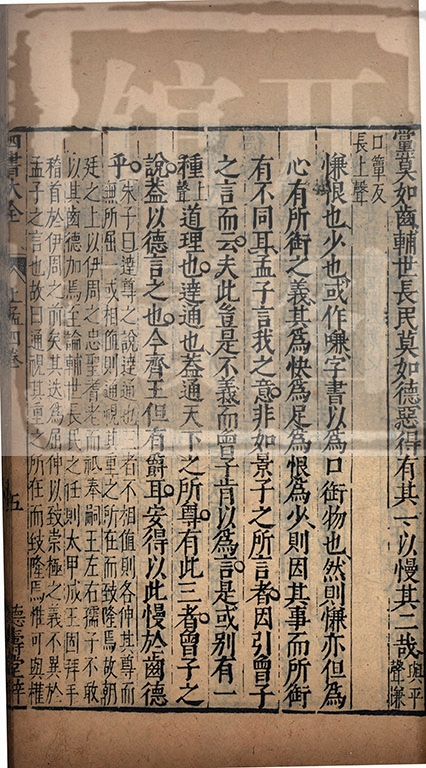 黨莫如齒輔世長民莫如德惡得有其一以慢其二哉
與平
聲慊
口簟反
長上聲
慊恨也少也或作嗛字書以為口銜物也然則慊亦但為
心有所銜之義其為快為足為恨為少則因其事而所銜
有不同耳孟子言我之意非如景子之所言者因引曾子
之言而云夫此豈是不義而曾子肯以為言是或別有一
種上聲道理也達通也蓋通天下之所尊有此三者曾子之
說蓋以德言之也今齊王但有爵耳安得以此慢於齒德
乎
朱子曰達尊之說達通也三者不相值則各伸其尊而
無所屈一或相值則通視其重之所在而致隆焉故朝
廷之上以伊周之忠聖耆老而祗奉嗣王左右孺子不敢
以其齒德加焉至論輔世長民之任則太甲成王固拜手
稽首於伊周之前矣其迭為屈伸以致崇極之義不異於
孟子之言也故曰通視其重之所在而致隆焉惟可與權
四書大全
上孟四卷
五
德壽堂梓